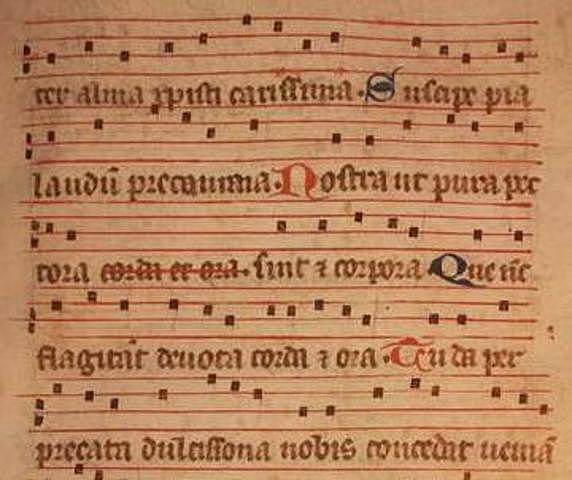 ter alma xpisti carissima. Suscipe pia
laudū precamina. Nostra ut pura pec
tora corda et ora. sint ⁊ corpora. Que nc̄
flagitāt devota corda ⁊ ora. Tu da per
precata dulcissona nobis concedat veniā